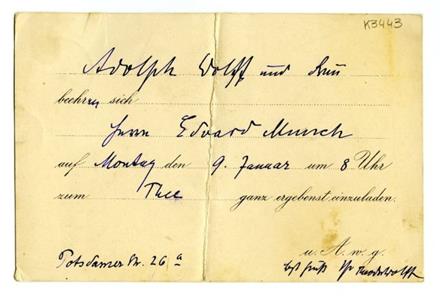 K3443
Adolph Wolff und Frau
beehren sich
Herrn Edvard Munch
auf Montag den 9. Januar um 8 Uhr
zum Thee ganz ergebenst einzuladen.
u. A. w. g.
Potsdamer Str. 26 a